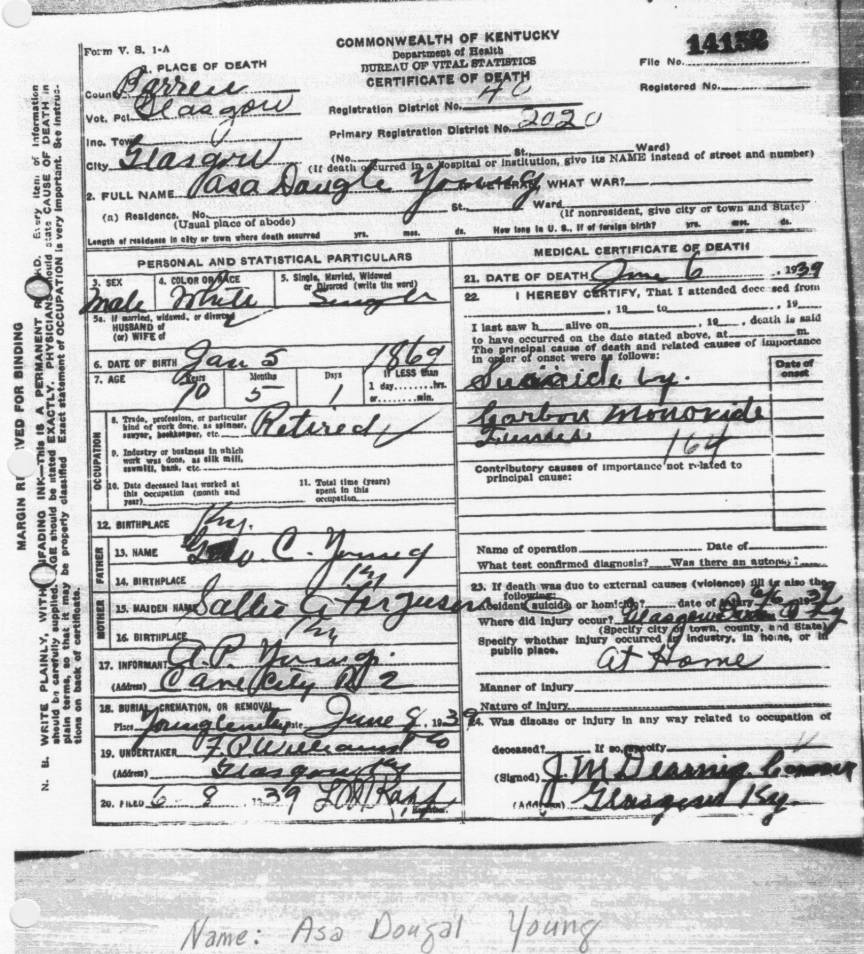 COMMONWEALTH OF KENTUCKY
Department of Health
BUREAU OF VITAL STATISTICS
CERTIFICATE OF DEATH
Form V. S. 1-A
File No. 14152
Registered No.
1. PLACE OF DEATH
County Barren
Vot. Pct. Glasgow
Inc. Town
City Glasgow
Registration District No. 40
Primary Registration District No. 2020
(No. St. Ward)
(If death occurred in a Hospital or institution, give its NAME instead of street and number)
2. FULL NAME Asa Dougle Young WHAT WAR?
(a) Residence. No. St. Ward
(Usual place of abode) (If nonresident, give city or town and State)
Length of residence in city or town where death occurred yrs. mos. ds. How long in U. S., if of foreign birth? yrs. mos. ds.
PERSONAL AND STATISTICAL PARTICULARS
3. SEX 4. COLOR OR RACE 5. Single, Married, Widowed
or Divorced (write the word)
Male White Single
5a. If married, widowed, or divorced
HUSBAND of
(or) WIFE of
6. DATE OF BIRTH Jan 5 1869
7. AGE Years Months Days If LESS than
70 5 1 1 day, hrs.
or min.
OCCUPATION
8. Trade, profession, or particular
kind of work done, as spinner,
sawyer, bookkeeper, etc. Retired
9. Industry or business in which
work was done, as silk mill,
sawmill, bank, etc.
10. Date deceased last worked at
this occupation (month and
year)
11. Total time (years)
spent in this
occupation
12. BIRTHPLACE Ky.
FATHER
13. NAME Geo. C. Young
14. BIRTHPLACE Ky
MOTHER
15. MAIDEN NAME Sallie A Ferguson
16. BIRTHPLACE Ky
17. INFORMANT A. P. Young
(Address) Cave City R 2
18. BURIAL, CREMATION, OR REMOVAL
Place Date June 8, 1939
19. UNDERTAKER F. P. Williams & Co
(Address) Glasgow Ky
20. FILED 6 8 1939
Registrar.
MEDICAL CERTIFICATE OF DEATH
21. DATE OF DEATH June 6, 1939
22. I HEREBY CERTIFY, That I attended deceased from
, 19 to , 19
I last saw h alive on , 19 , death is said
to have occurred on the date stated above, at m.
The principal cause of death and related causes of importance
in order of onset were as follows:
Date of
onset
Suicide by
Carbon Monoxide
Fumes 164
Contributory causes of importance not related to
principal cause:
Name of operation Date of
What test confirmed diagnosis? Was there an autopsy?
23. If death was due to external causes (violence) fill in also the
following:
Accident, suicide, or homicide? date of injury 6/6 1939
Where did injury occur? Glasgow Ky
(Specify city or town, county, and State)
Specify whether injury occurred in industry, in home, or in
public place.
At Home
Manner of injury
Nature of injury
24. Was disease or injury in any way related to occupation of
deceased? If so, specify
(Signed) J. M. Dearing Coroner
(Address) Glasgow Ky.
MARGIN RESERVED FOR BINDING
N. B. WRITE PLAINLY, WITH UNFADING INK—THIS IS A PERMANENT RECORD. Every item of information
should be carefully supplied. AGE should be stated EXACTLY. PHYSICIANS should state CAUSE OF DEATH in
plain terms, so that it may be properly classified. Exact statement of OCCUPATION is very important. See instruc-
tions on back of certificate.
Name: Asa Dougal Young